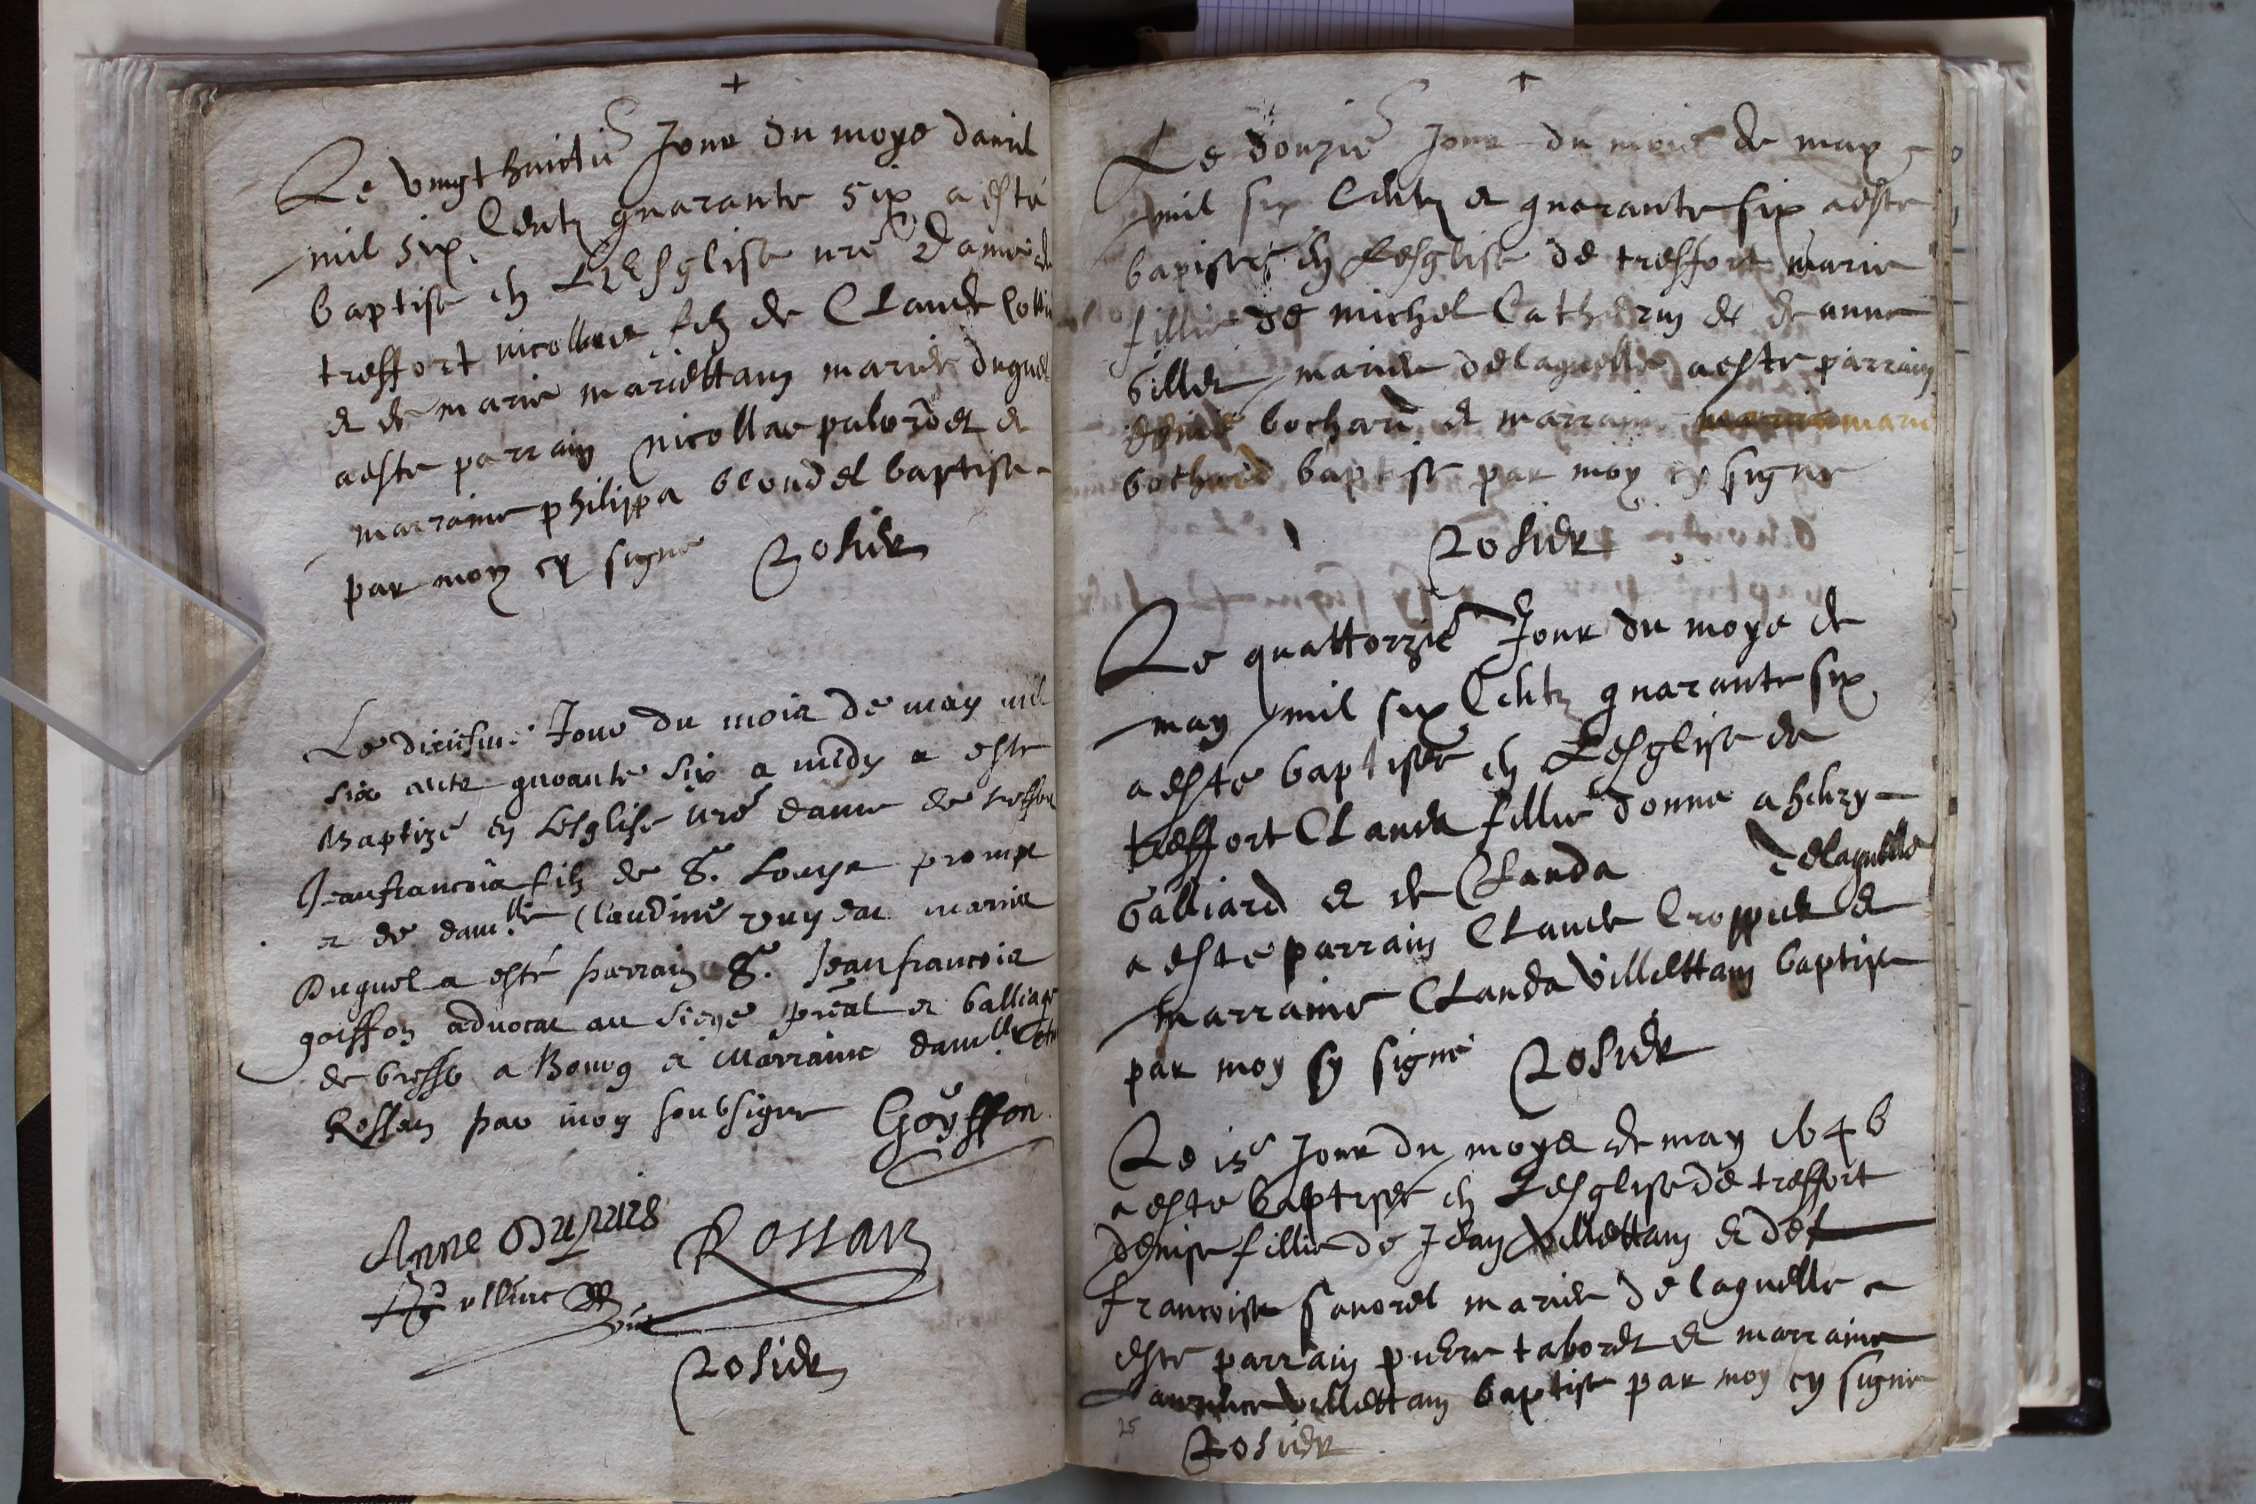 +
Le vingt huictie Jour du moys davril
mil six Centz quarante six a esté
baptise en LEsglise nre Dame de
treffort nicollas filz de Claude
et de marie mariettain mariés duquel
a este parrain nicollas et
marraine philippa blondel baptise
par moy cy signe Rosier
Le dixiesme Jour du mois de may mil
six cents quarante six a midy a esté
Baptizé en Lesglise nre dame de treffort
Jeanfrancois filz de S.r Louys prompt
et de dam.lle Claudine puydat mariés
Duquel a esté parrain S.r Jeanfrancois
goiffon advocat au siege preal et balliage
de bresse a Bourg et Marraine dam.lle
Rossan par moy soubsigne Goÿffon
Anne Dupuis Rossan
Rosier
+
Le douzie Jour du mois de may
mil six Centz et quarante six a este
baptisée en Lesglise de treffort marie
fillie de michel Catherin et de anne
billet mariés de laquelle a este parrain
denis bochard et marraine marie
bochard baptisé par moy cy signe
Rosier
Le quattorzie Jour du moys de
may mil six Centz quarante six
a este baptisée en Lesglise de
treffort Clauda fillie donne a henry
Galliard et de Clauda de laquelle
a este parrain Claude Croppet et
marraine Clauda villettain baptise
par moy sy signé Rosier
Le 15e Jour du moys de may 1646
a este baptisée en Lesglise de treffort
denise fillie de Jean villettain et de
francoise savorel mariés de laquelle a
este parrain pierre tabordet et marraine
villettain baptise par moy cy signe
25 Rosier